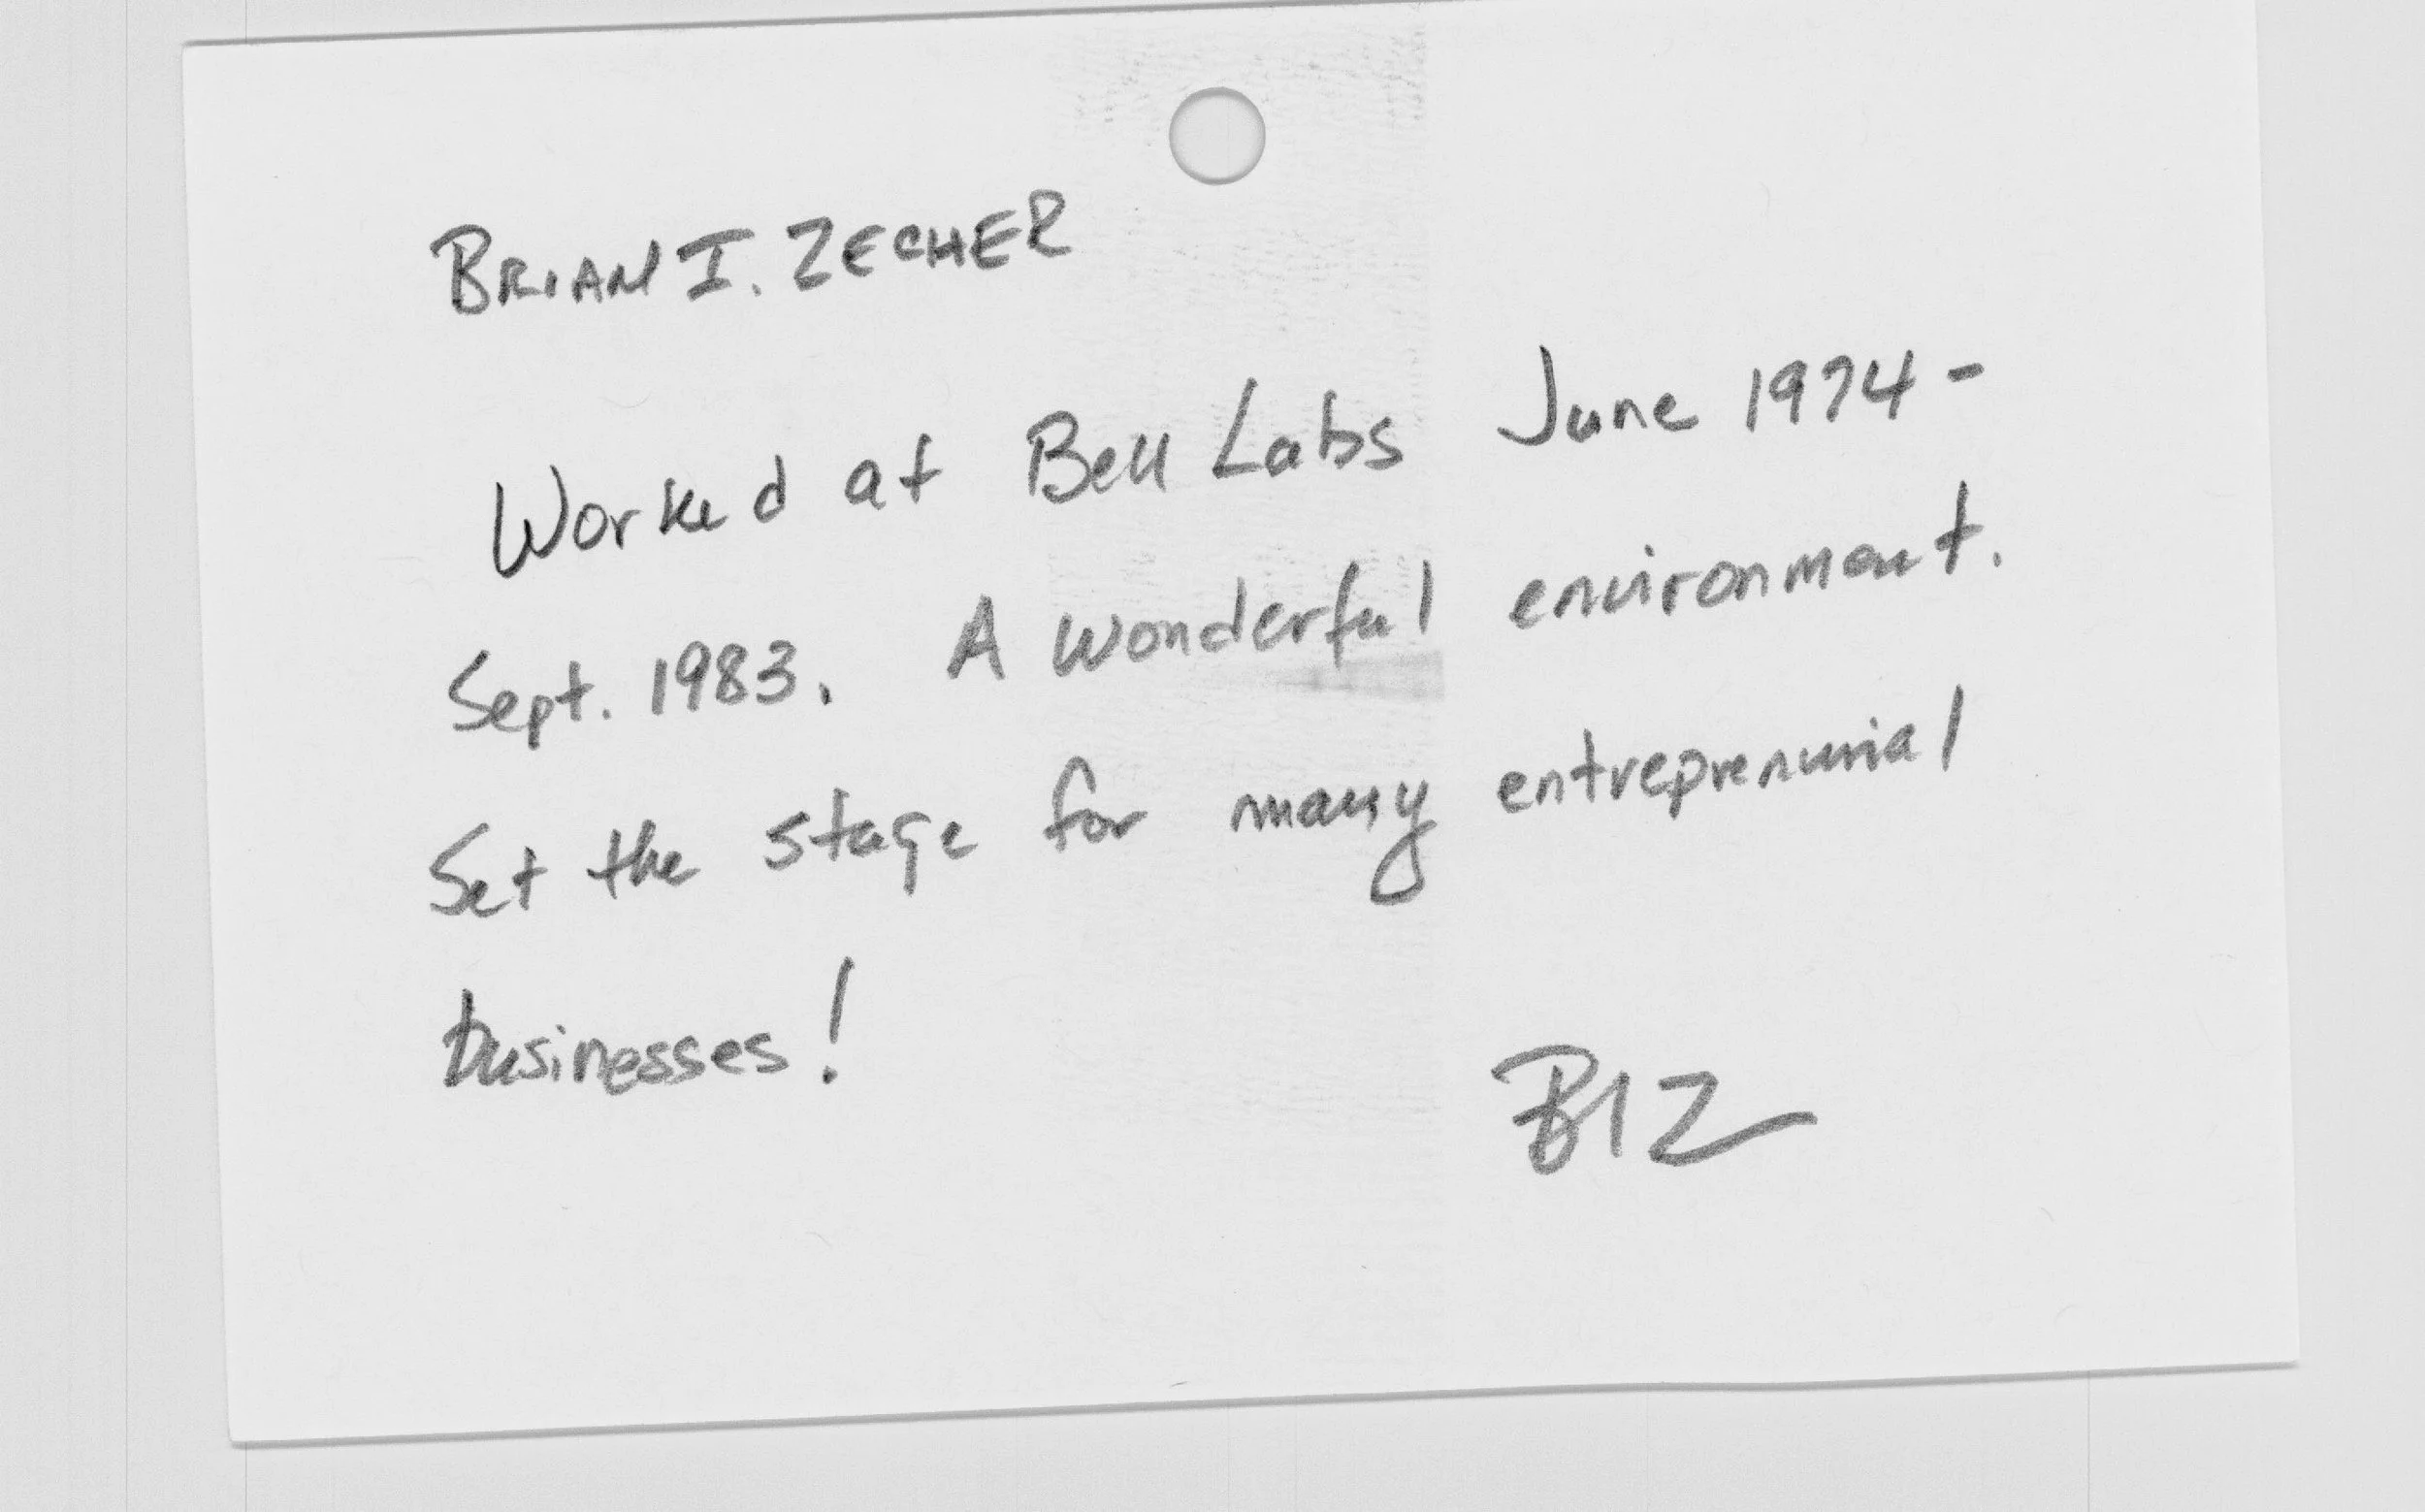 BRIAN I. ZECHER
Worked at Bell Labs June 1974 -
Sept. 1983. A wonderful environment.
Set the stage for many entreprenurial
businesses!
BIZ